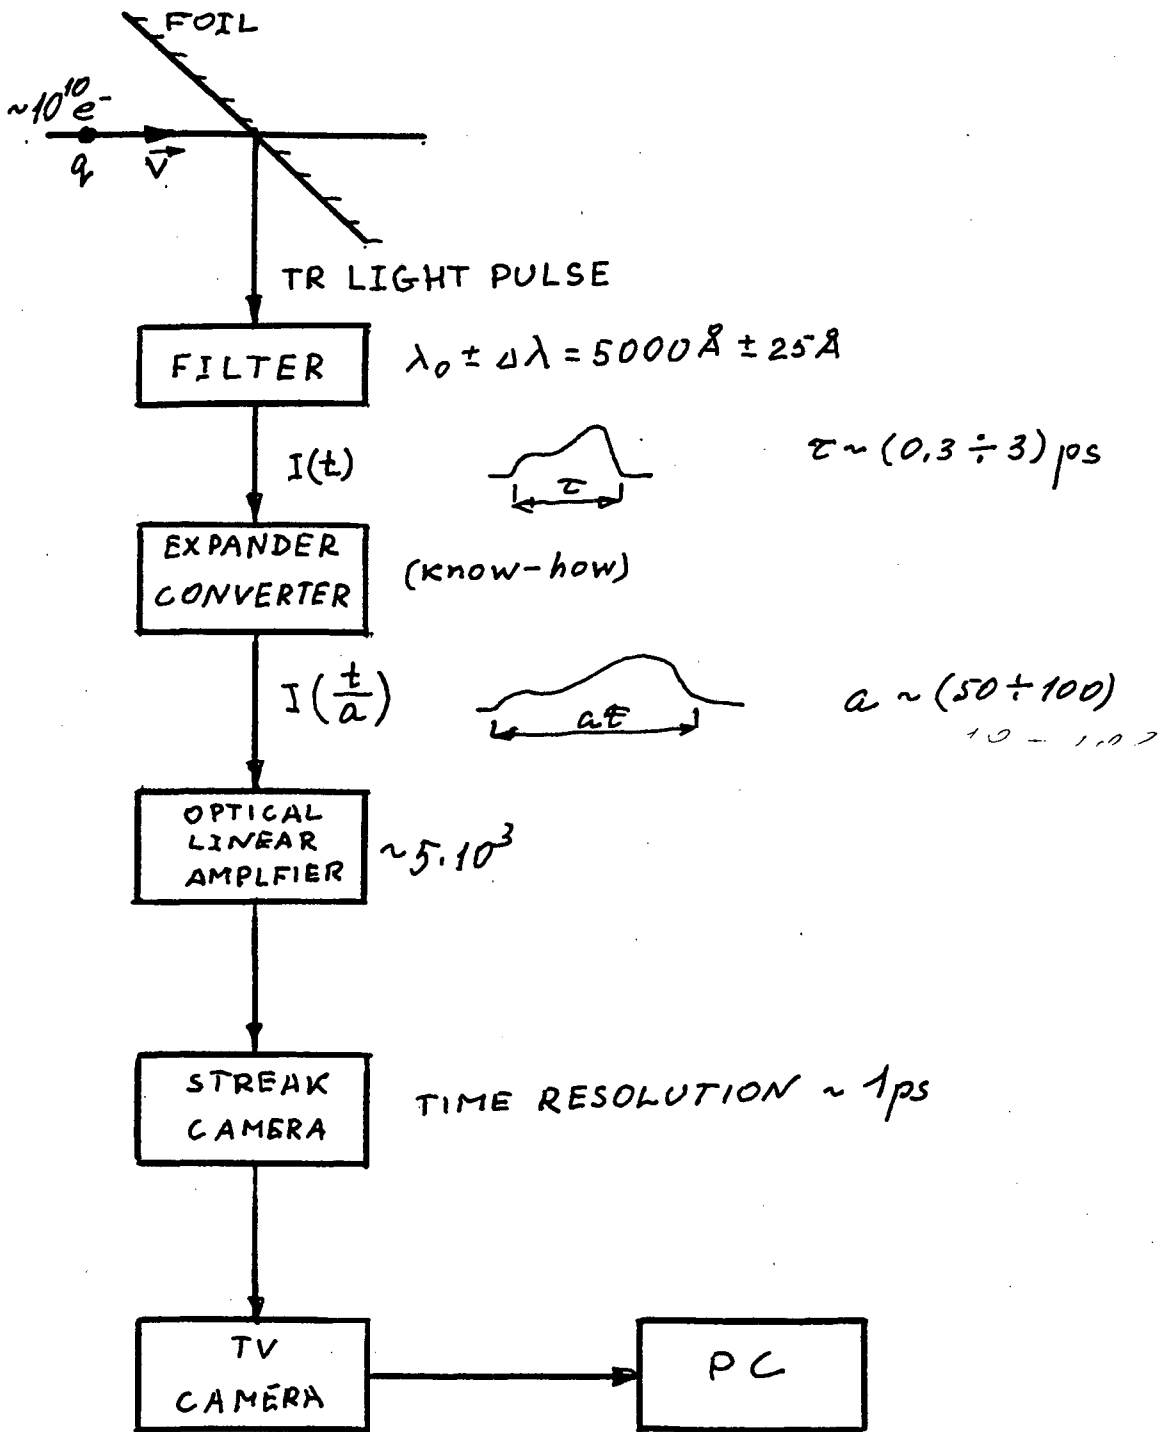 FOIL
~10¹⁰ e⁻
q v⃗
TR LIGHT PULSE
FILTER
λ₀ ± Δλ = 5000 Å ± 25 Å
I(t)
τ
τ ~ (0.3 ÷ 3) ps
EXPANDER
CONVERTER
(know-how)
I(t/a)
aτ
a ~ (50 ÷ 100)
OPTICAL
LINEAR
AMPLFIER
~5·10³
STREAK
CAMERA
TIME RESOLUTION ~ 1ps
TV
CAMERA
PC